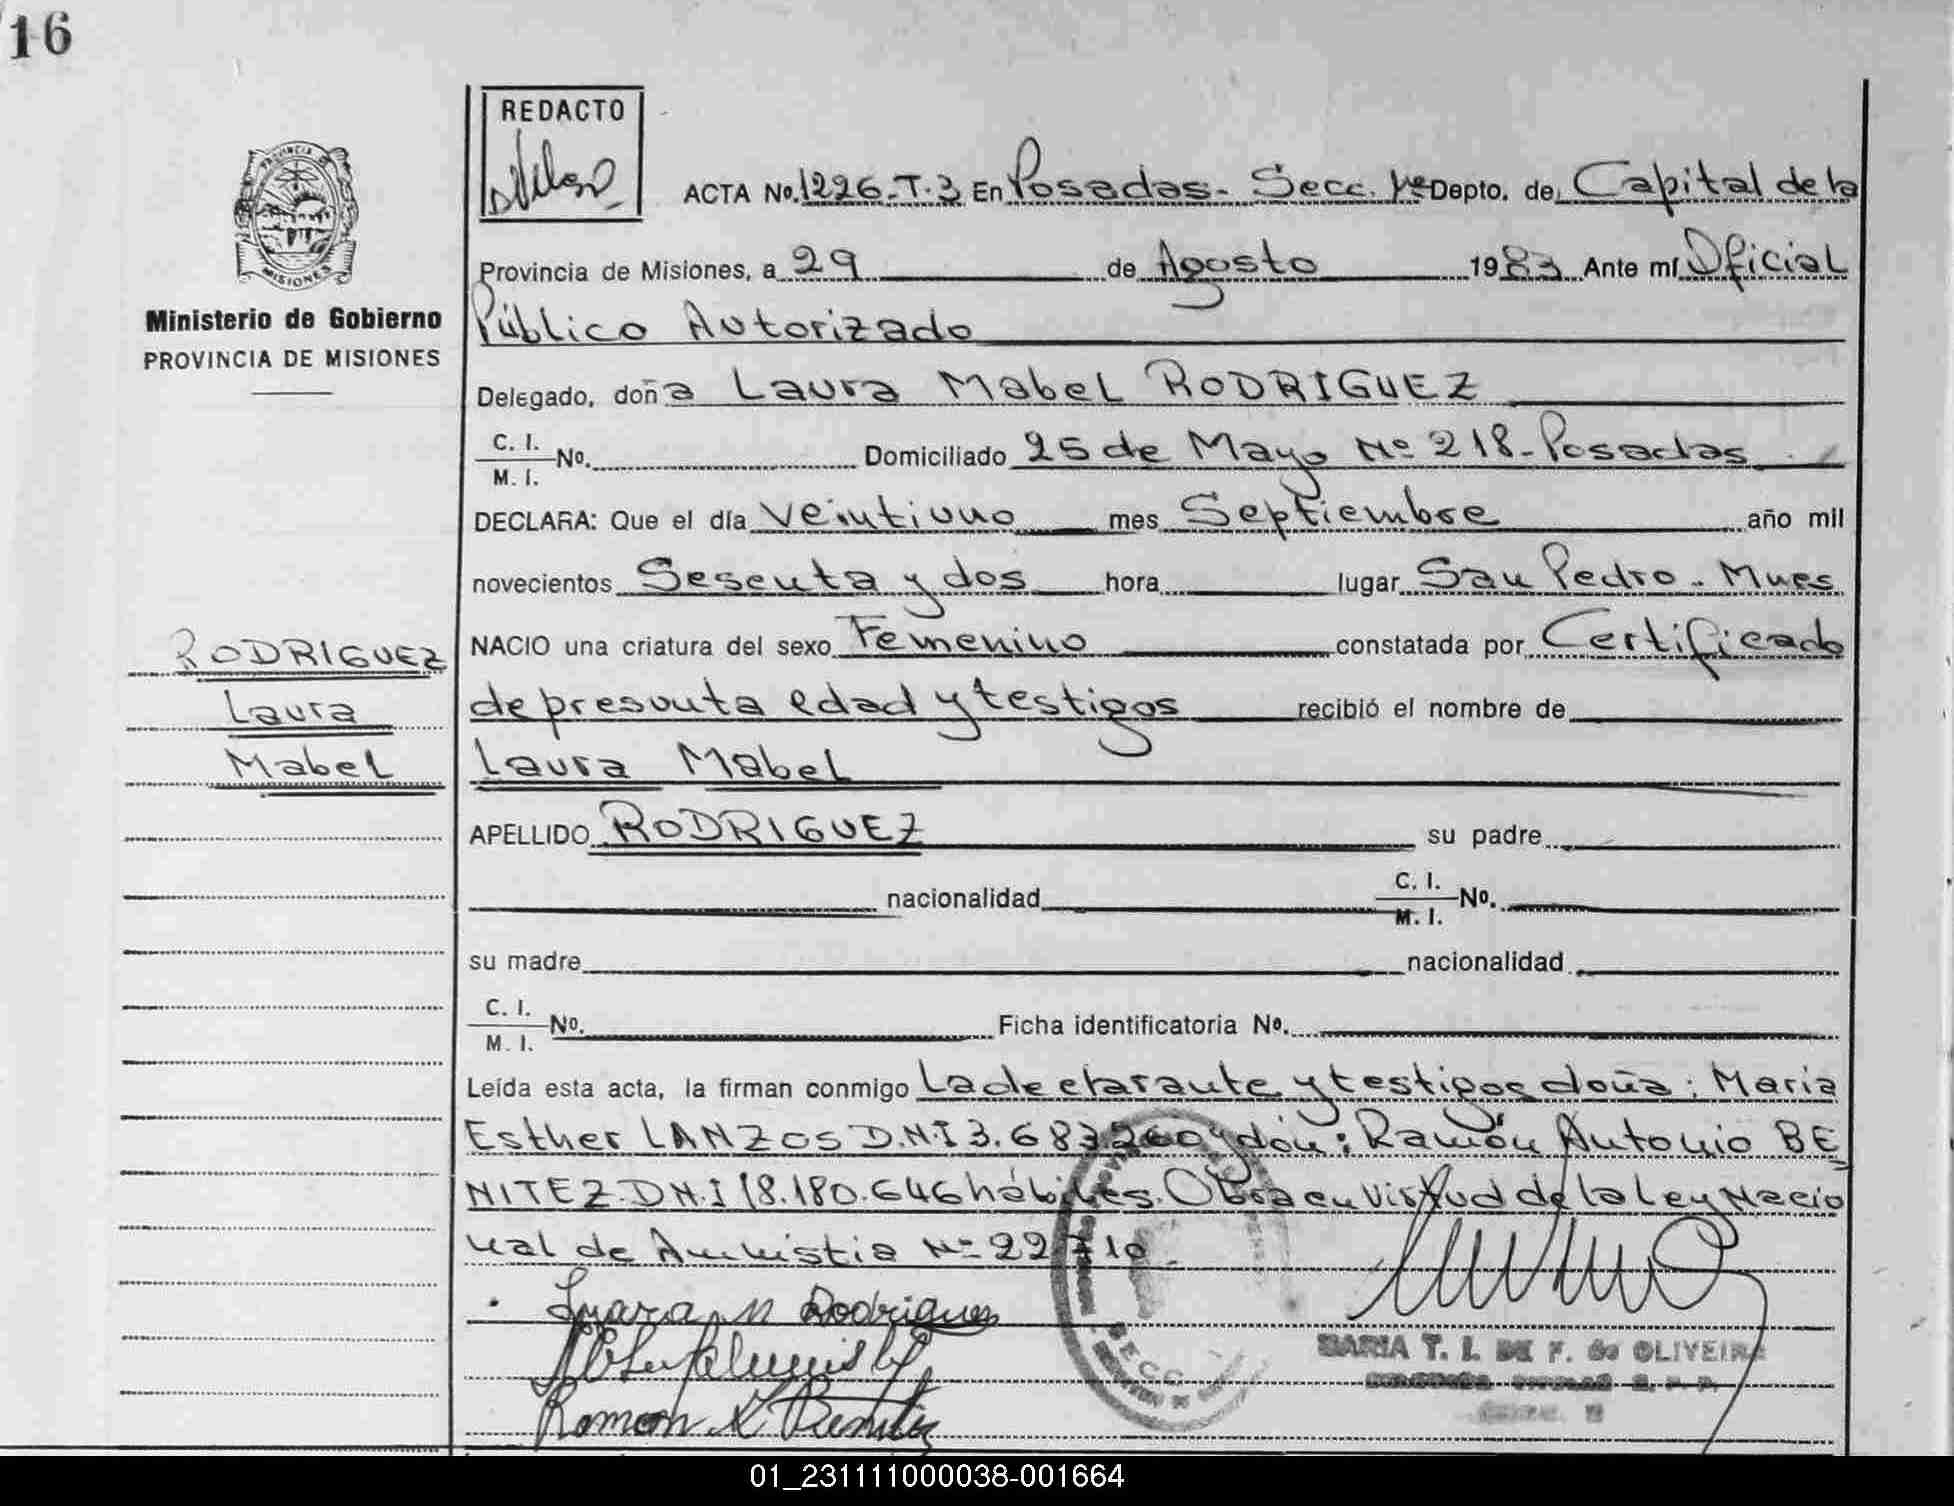 16
REDACTO
ACTA No. 1226-T.3 En Posadas- Secc. 1ª Depto. de Capital de la
PROVINCIA DE
MISIONES
Provincia de Misiones, a 29 de Agosto 1983 Ante mí Oficial
Ministerio de Gobierno
PROVINCIA DE MISIONES
Público Autorizado
Delegado, doña Laura Mabel RODRIGUEZ
C. I.
M. I. No. Domiciliado 25 de Mayo Nº 218-Posadas
DECLARA: Que el día veintiuno mes Septiembre año mil
novecientos Sesenta y dos hora lugar San Pedro - Mnes
NACIO una criatura del sexo Femenino constatada por Certificado
RODRIGUEZ
Laura
Mabel
de presunta edad y testigos recibió el nombre de
Laura Mabel
APELLIDO RODRIGUEZ su padre
nacionalidad C. I.
M. I. No.
su madre nacionalidad
C. I.
M. I. No. Ficha identificatoria No.
Leída esta acta, la firman conmigo La declarante y testigos doña: Maria
Esther LANZOS D.N.I 3.683.260 y dón: Ramón Antonio BE
NITEZ D.N.I 18.180.646 hábiles. Obra en virtud de la Ley Nacio
nal de Amnistia Nº 22710
Laura M Rodriguez
Ramon A Benitez
MARIA T. I. DE F. de OLIVEIRA
SECC.
01_231111000038-001664